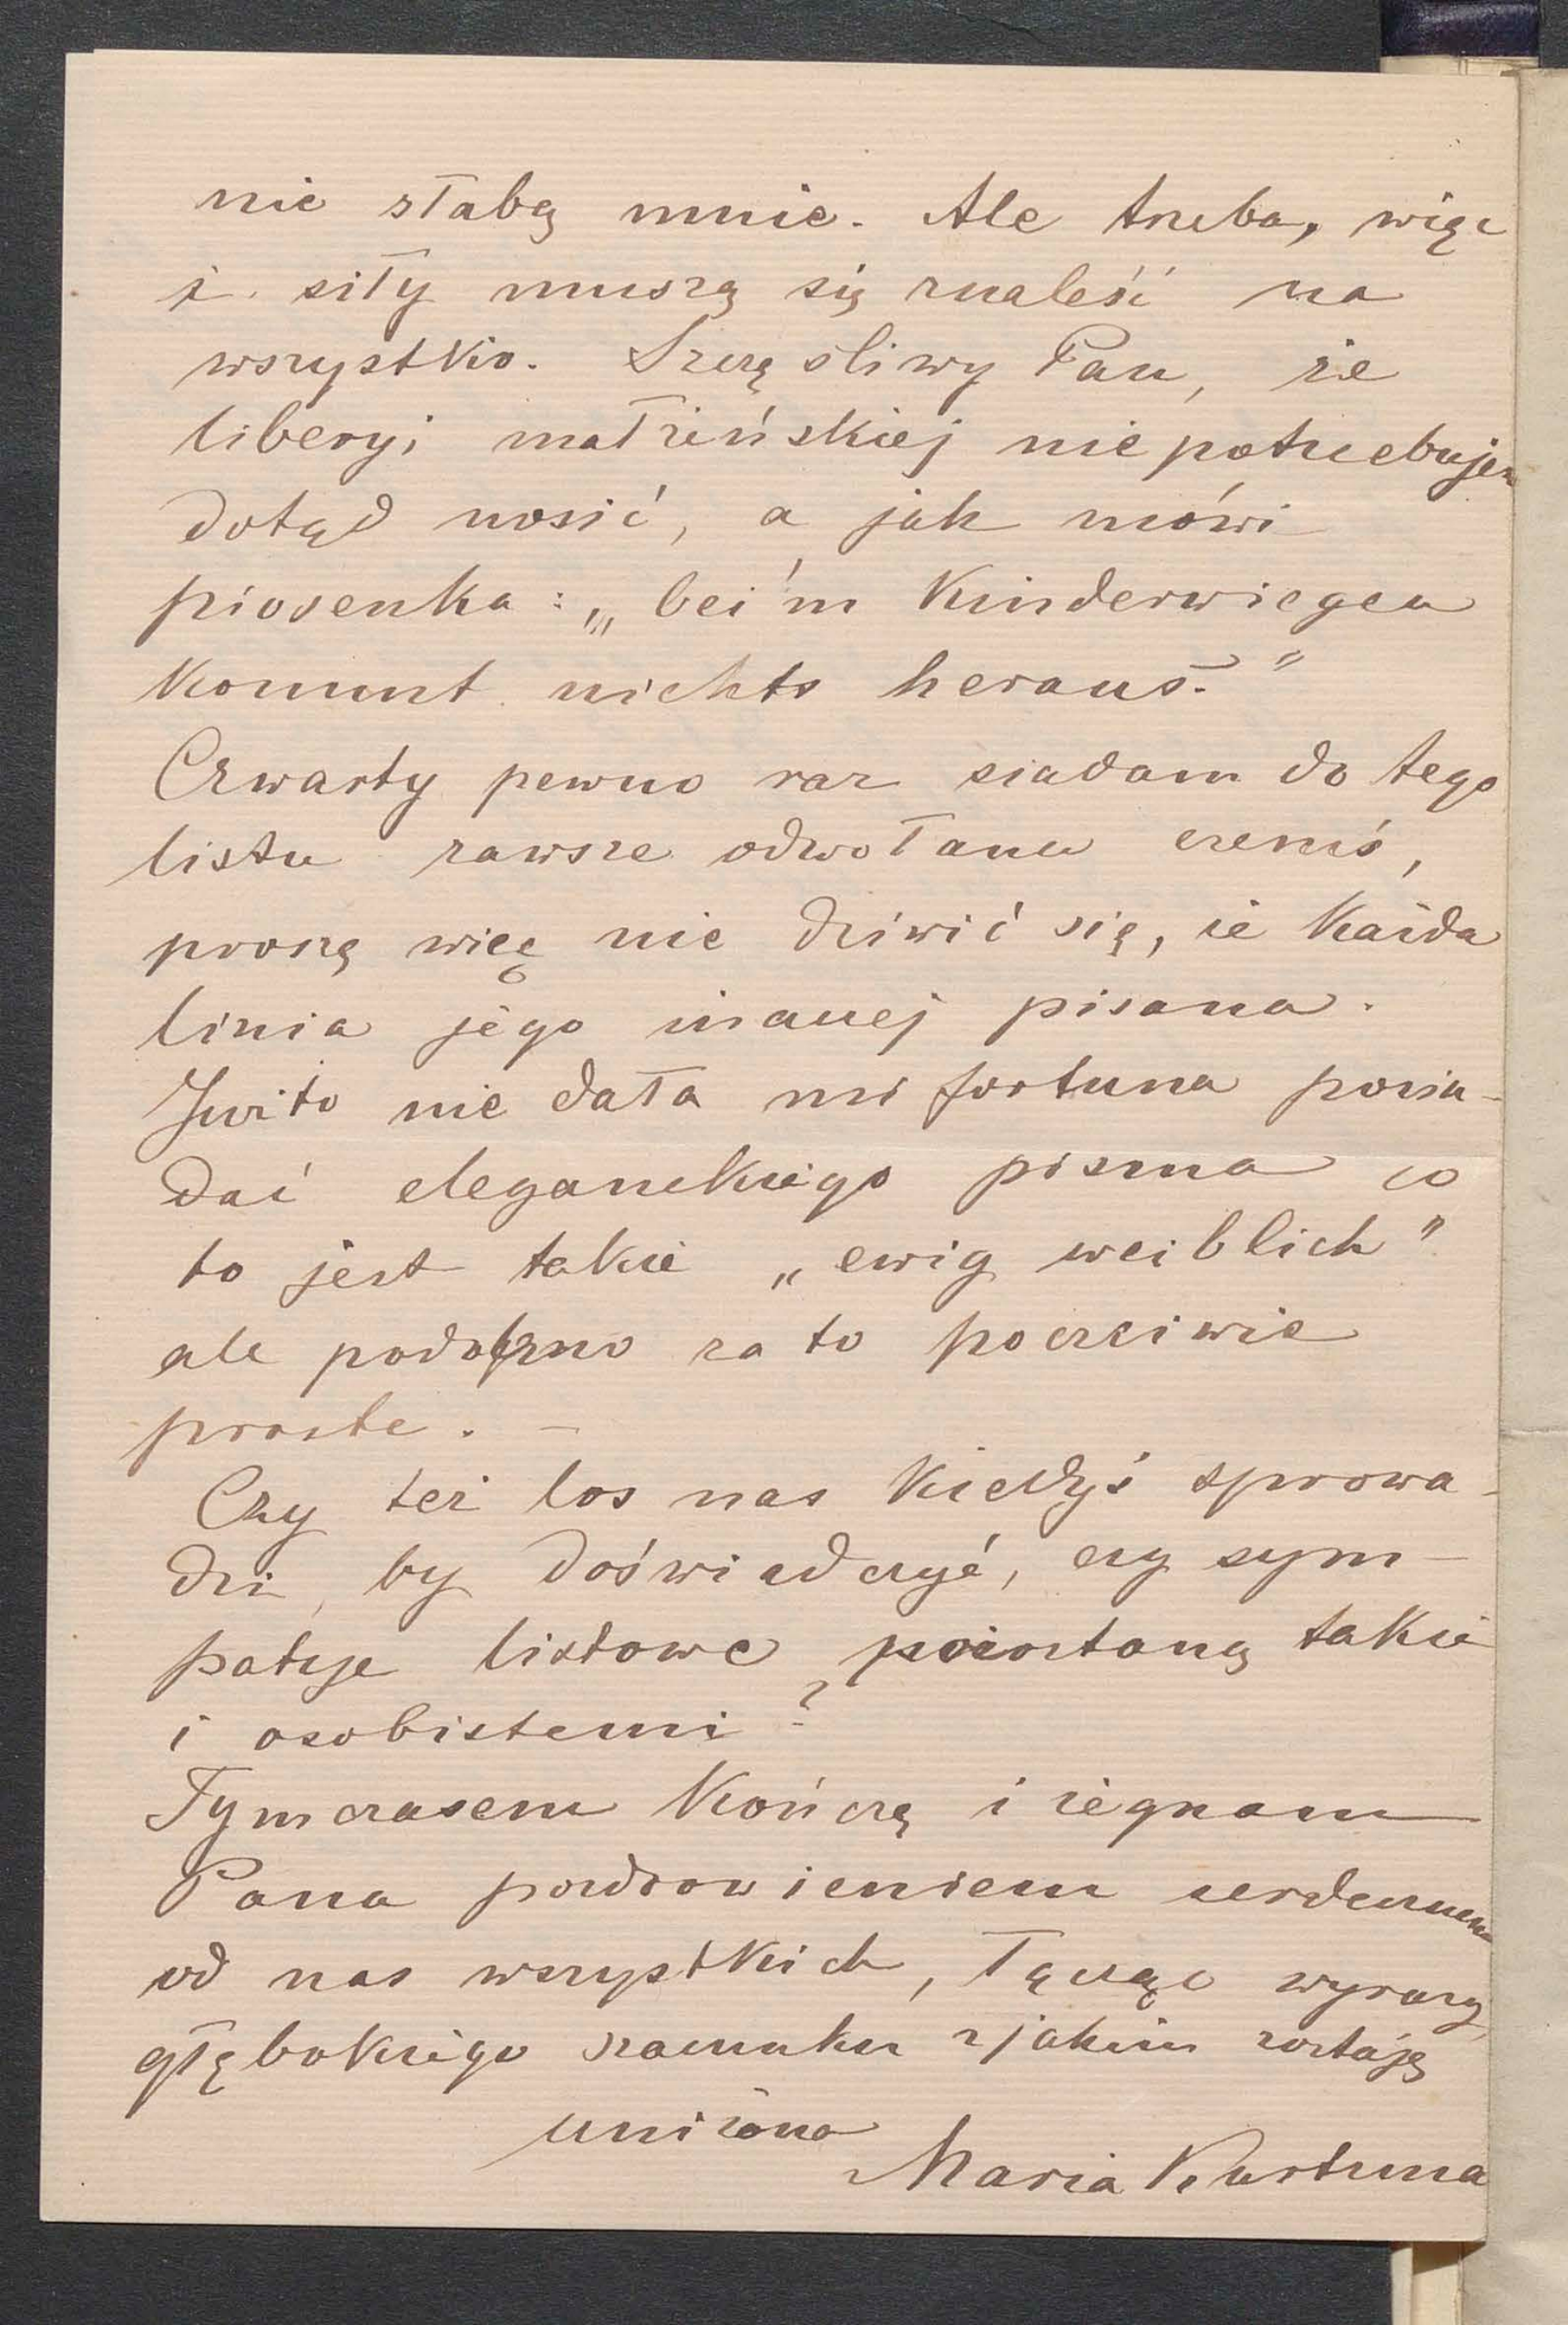 nie słabą mnie. Ale trzeba, więc
i siły muszą się znaleść na
wszystko. Szczęśliwy Pan, że
liberyi małżeńskiej nie potrzebujesz
dotąd nosić, a jak mówi
piosenka: „bei'm Kinderwiegen
kommt nichts heraus."
Czwarty pewno raz siadam do tego
listu zawsze odwołana czemś,
proszę więc nie dziwić się, że każda
linia jego inaczej pisana.
nie dała mi fortuna posia-
dać eleganckiego pisma co
to jest takie „ewig weiblich"
ale podobno za to poczciwie
proste. –
Czy też los nas kiedyś sprowa-
dzi, by doświadczyć, czy sym-
patye listowe pozostaną takie
i osobistemi?
Tymczasem kończę i żegnam
Pana pozdrowieniem serdecznem
od nas wszystkich, łącząc wyrazy
głębokiego szacunku z jakim zostaję
uniżona
Maria